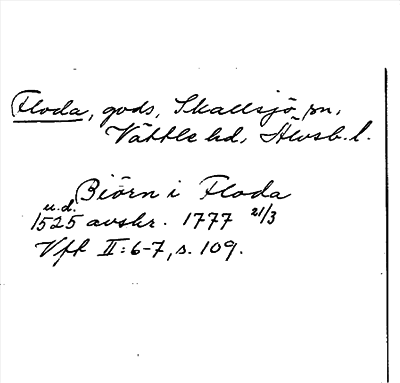 Floda, gods, Skallsjö sn,
Vättle hd, Älvsb. l.
Biörn i Floda
u.d.
1525 avskr. 1777 21/3
Vft II:6-7, s. 109.